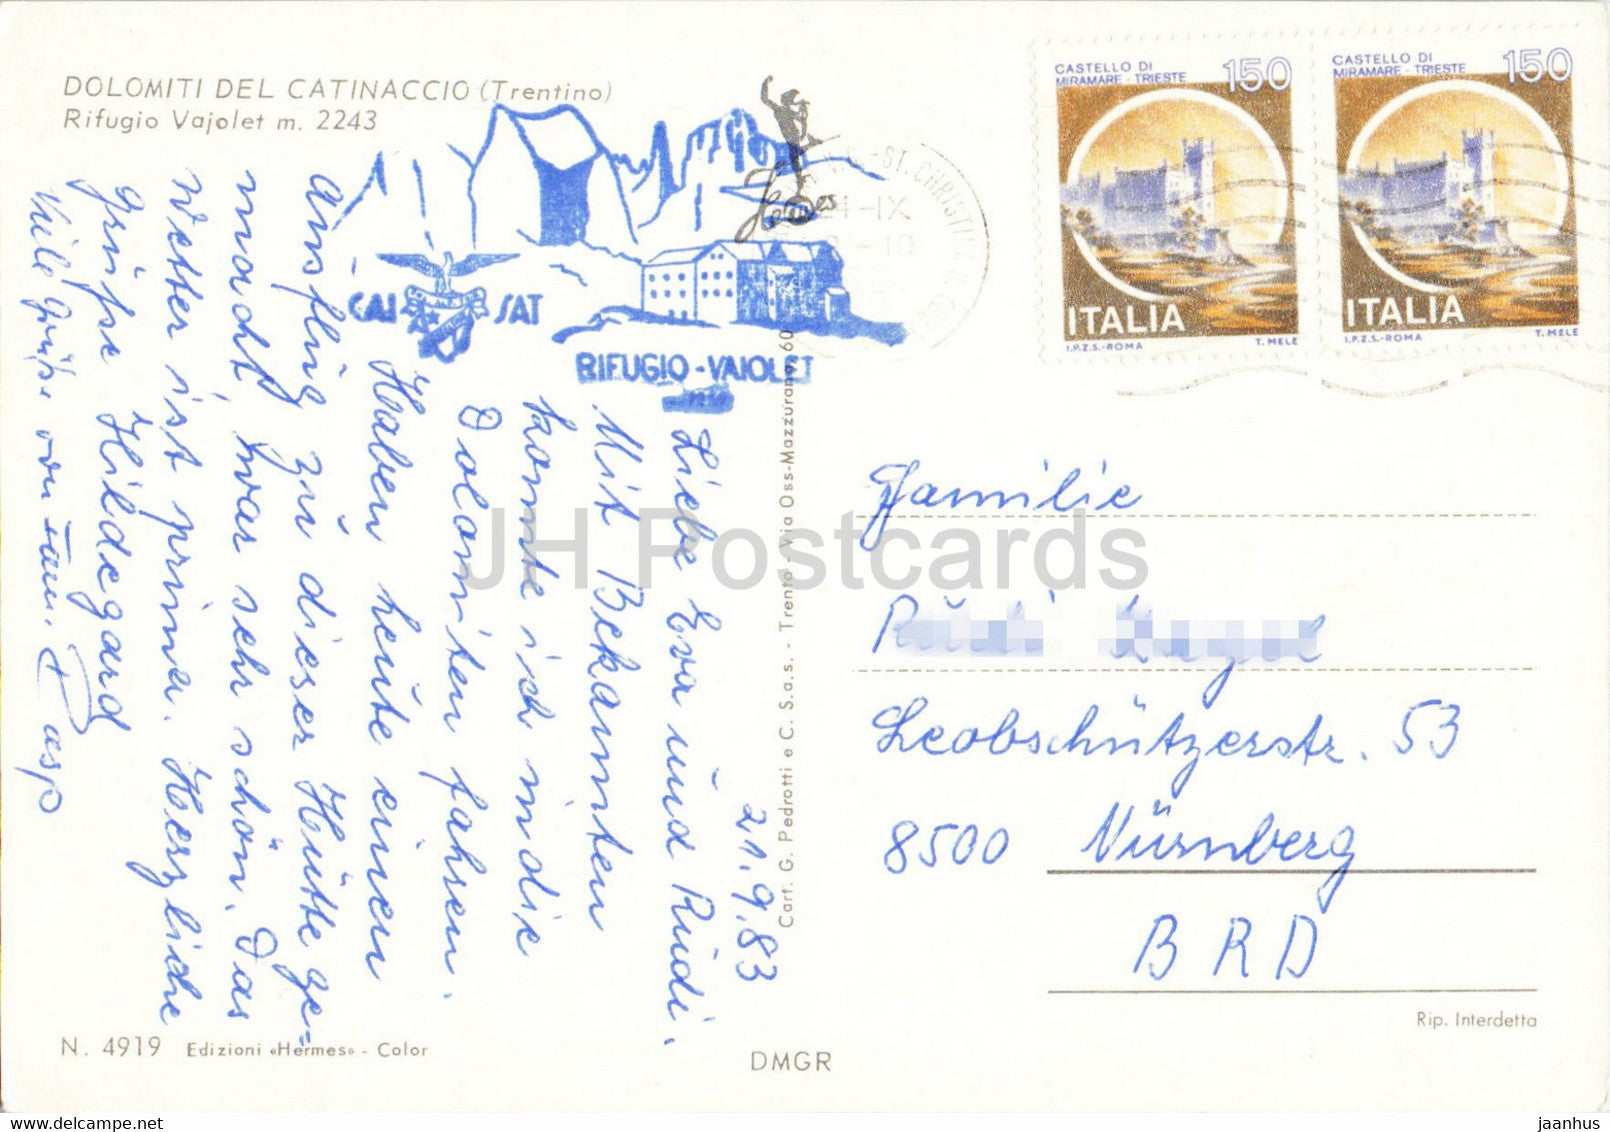 DOLOMITI DEL CATINACCIO (Trentino)
Rifugio Vajolet m. 2243
CAI SAT
RIFUGIO - VAIOLET
Hermes
ST. CHRISTINA
-IX
CASTELLO DI
MIRAMARE - TRIESTE
150
ITALIA
I.P.Z.S.-ROMA
T. MELE
CASTELLO DI
MIRAMARE - TRIESTE
150
ITALIA
I.P.Z.S.-ROMA
T. MELE
21.9.83
Liebe Eva und Rudi.
Mit Bekannten
konnte ich in die
Dolomiten fahren.
Haben heute einen
Ausflug zu dieser Hütte ge=
macht, war sehr schön. Das
Wetter ist prima. Herzliche
Grüße Hildegard
Viele Grüße von Fam.
Cart. G. Pedrotti e C. S.a.s. - Trento - Via Oss-Mazzurana, 60
Familie
Leobschützerstr. 53
8500 Nürnberg
BRD
Rip. Interdetta
N. 4919 Edizioni «Hermes» - Color
DMGR
JH Postcards
www.delcampe.net
jaanhus